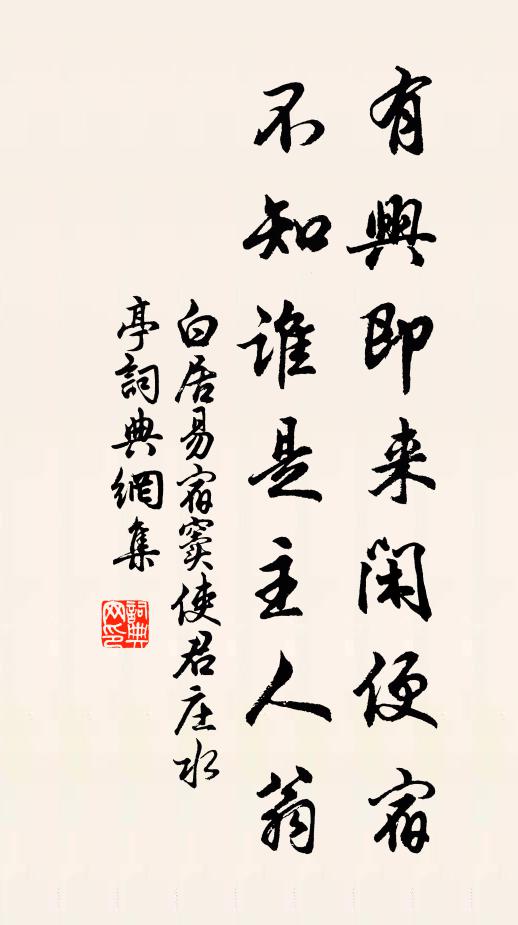 有興即来闲便宿
不知谁是主人翁
白居易宿窦使君庄水
亭詞典網集
詞典网印